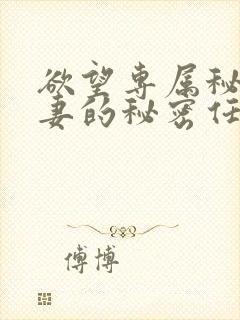 欲望专属秘
妻的秘密任
傅博